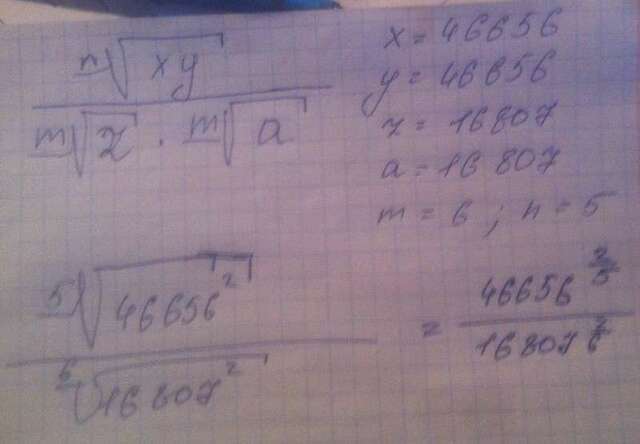 ⁿ√(xy) / (ᵐ√z · ᵐ√a)
x = 46656
y = 46656
z = 16807
a = 16807
m = 6 ; n = 5
⁵√(46656²) / ⁶√(16807²) = 46656^(2/5) / 16807^(2/6)